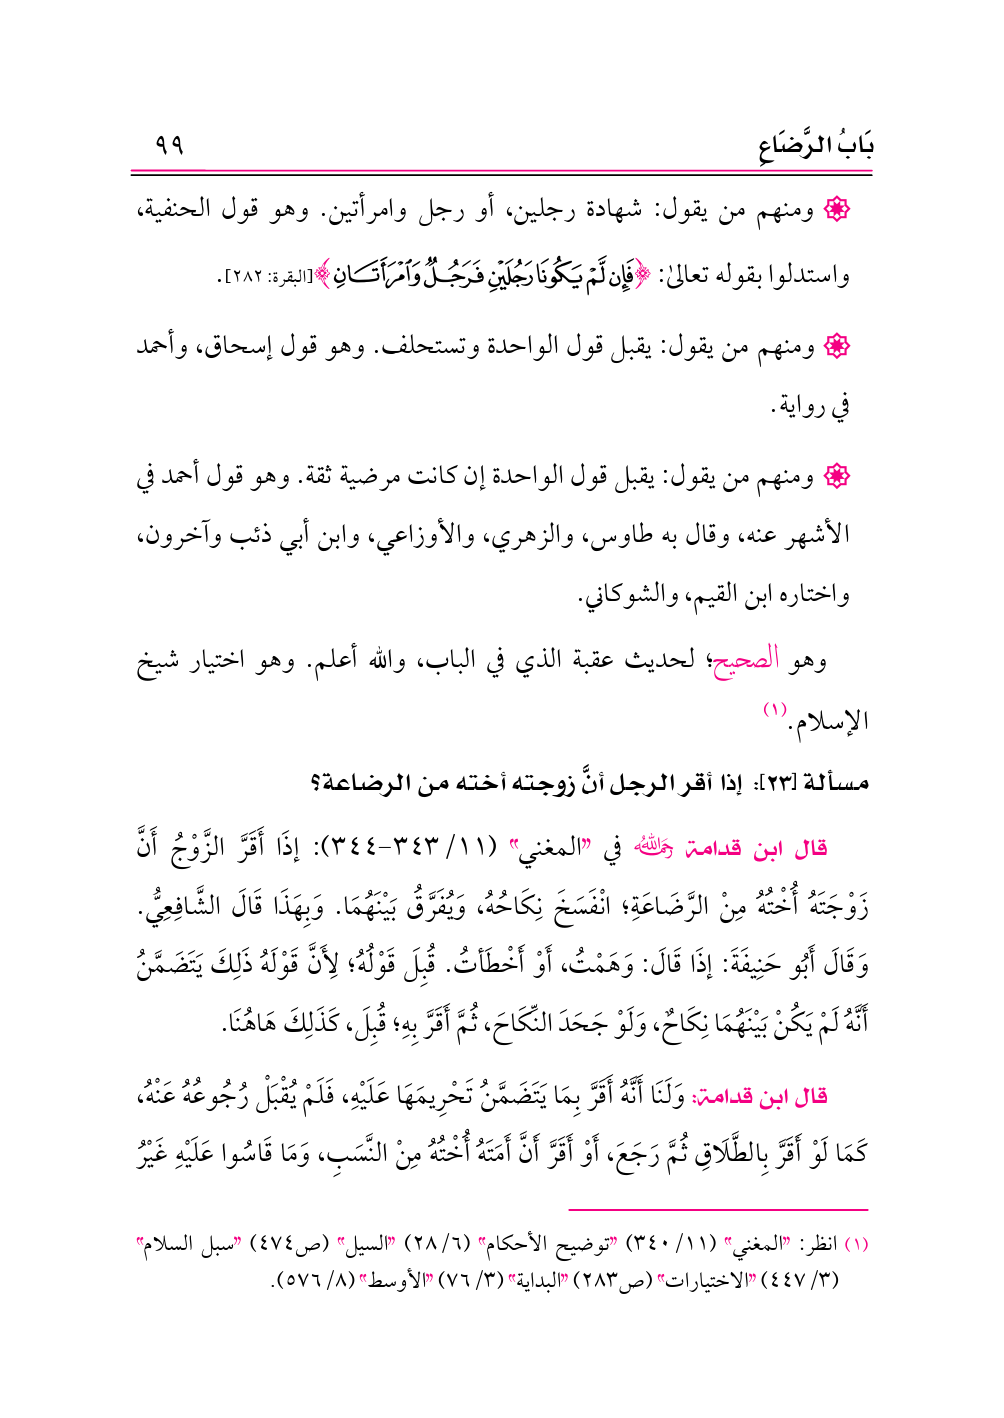 بَابُ الرَّضَاعِ ٩٩
ومنهم من يقول: شهادة رجلين، أو رجل وامرأتين. وهو قول الحنفية،
واستدلوا بقوله تعالىٰ: ﴿فَإِن لَّمْ يَكُونَا رَجُلَيْنِ فَرَجُلٌ وَٱمْرَأَتَانِ﴾ [البقرة: ٢٨٢].
ومنهم من يقول: يقبل قول الواحدة وتستحلف. وهو قول إسحاق، وأحمد
في رواية.
ومنهم من يقول: يقبل قول الواحدة إن كانت مرضية ثقة. وهو قول أحمد في
الأشهر عنه، وقال به طاوس، والزهري، والأوزاعي، وابن أبي ذئب وآخرون،
واختاره ابن القيم، والشوكاني.
وهو الصحيح؛ لحديث عقبة الذي في الباب، والله أعلم. وهو اختيار شيخ
الإسلام.(١)
مسألة [٢٣]: إذا أقر الرجل أنَّ زوجته أخته من الرضاعة؟
قال ابن قدامة رحمه الله في "المغني" (١١/ ٣٤٣-٣٤٤): إذَا أَقَرَّ الزَّوْجُ أَنَّ
زَوْجَتَهُ أُخْتُهُ مِنْ الرَّضَاعَةِ؛ انْفَسَخَ نِكَاحُهُ، وَيُفَرَّقُ بَيْنَهُمَا. وَبِهَذَا قَالَ الشَّافِعِيُّ.
وَقَالَ أَبُو حَنِيفَةَ: إذَا قَالَ: وَهَمْتُ، أَوْ أَخْطَأتُ. قُبِلَ قَوْلُهُ؛ لِأَنَّ قَوْلَهُ ذَلِكَ يَتَضَمَّنُ
أَنَّهُ لَمْ يَكُنْ بَيْنَهُمَا نِكَاحٌ، وَلَوْ جَحَدَ النِّكَاحَ، ثُمَّ أَقَرَّ بِهِ؛ قُبِلَ، كَذَلِكَ هَاهُنَا.
قال ابن قدامة: وَلَنَا أَنَّهُ أَقَرَّ بِمَا يَتَضَمَّنُ تَحْرِيمَهَا عَلَيْهِ، فَلَمْ يُقْبَلْ رُجُوعُهُ عَنْهُ،
كَمَا لَوْ أَقَرَّ بِالطَّلَاقِ ثُمَّ رَجَعَ، أَوْ أَقَرَّ أَنَّ أَمَتَهُ أُخْتُهُ مِنْ النَّسَبِ، وَمَا قَاسُوا عَلَيْهِ غَيْرُ
(١) انظر: "المغني" (١١/ ٣٤٠) "توضيح الأحكام" (٦/ ٢٨) "السيل" (ص٤٧٤) "سبل السلام"
(٣/ ٤٤٧) "الاختيارات" (ص٢٨٣) "البداية" (٣/ ٧٦) "الأوسط" (٨/ ٥٧٦).